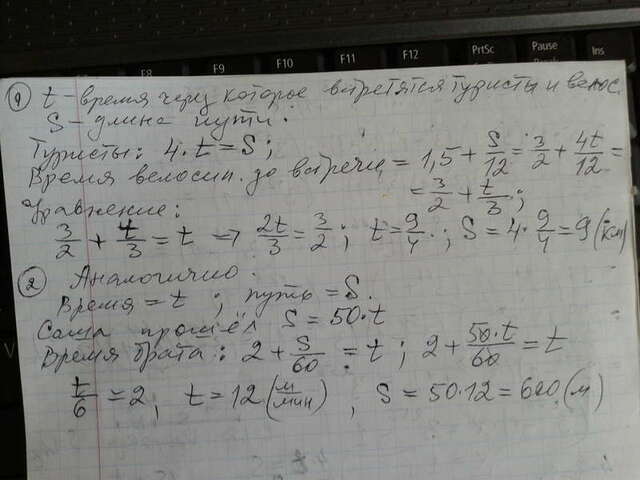 F8 F9 F10 F11 F12 PrtSc Pause Ins
① t – время через которое встретятся туристы и велос.
S – длина пути.
Туристы: 4·t = S;
Время велосип. до встречи = 1,5 + S/12 = 3/2 + 4t/12 =
= 3/2 + t/3;
Уравнение:
3/2 + t/3 = t ⇒ 2t/3 = 3/2; t = 9/4; S = 4·9/4 = 9 (км)
② Аналогично.
Время = t; путь = S.
Саша прошёл S = 50·t
Время брата: 2 + S/60 = t; 2 + 50·t/60 = t
t/6 = 2; t = 12 (м/мин), S = 50·12 = 600 (м)